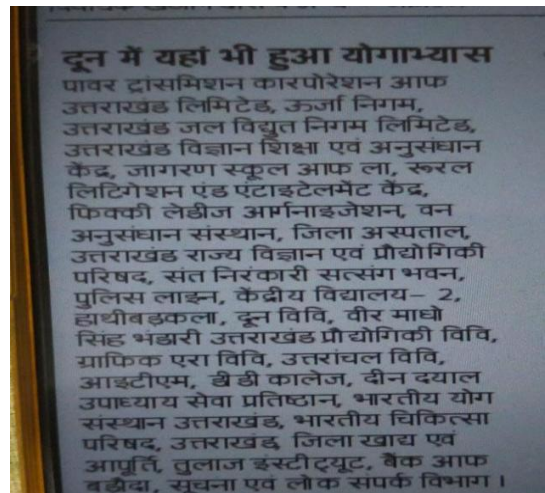 दून में यहां भी हुआ योगाभ्यास
पावर ट्रांसमिशन कारपोरेशन आफ
उत्तराखंड लिमिटेड, ऊर्जा निगम,
उत्तराखंड जल विद्युत निगम लिमिटेड,
उत्तराखंड विज्ञान शिक्षा एवं अनुसंधान
केंद्र, जागरण स्कूल आफ ला, रूरल
लिटिगेशन एंड एंटाइटेलमेंट केंद्र,
फिक्की लेडीज आर्गनाइजेशन, वन
अनुसंधान संस्थान, जिला अस्पताल,
उत्तराखंड राज्य विज्ञान एवं प्रौद्योगिकी
परिषद, संत निरंकारी सत्संग भवन,
पुलिस लाइन, केंद्रीय विद्यालय– 2,
हाथीबड़कला, दून विवि, वीर माधो
सिंह भंडारी उत्तराखंड प्रौद्योगिकी विवि,
ग्राफिक एरा विवि, उत्तरांचल विवि,
आइटीएम, डीडी कालेज, दीन दयाल
उपाध्याय सेवा प्रतिष्ठान, भारतीय योग
संस्थान उत्तराखंड, भारतीय चिकित्सा
परिषद, उत्तराखंड, जिला खाद्य एवं
आपूर्ति, तुलाज इंस्टीट्यूट, बैंक आफ
बड़ौदा, सूचना एवं लोक संपर्क विभाग।